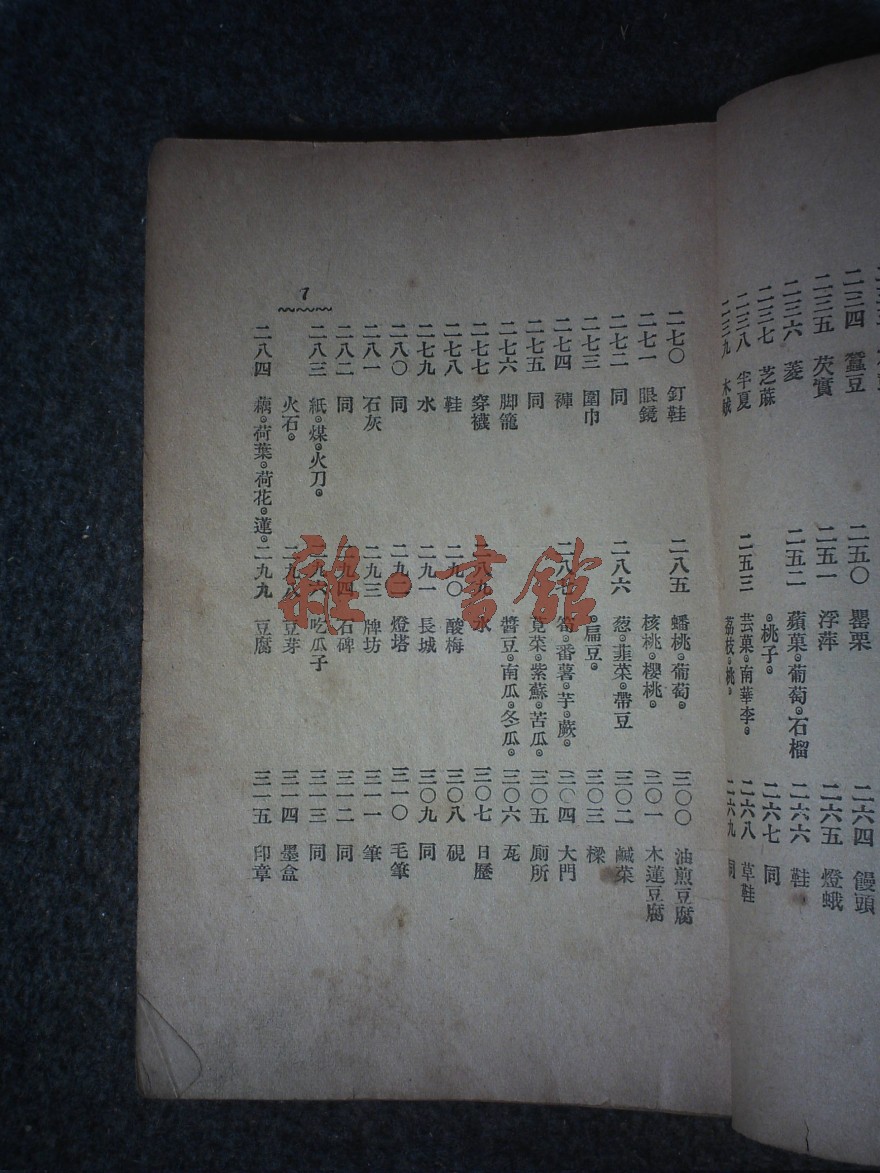 二三四 蠶豆
二三五 芡實
二三六 菱
二三七 芝蔴
二三八 半夏
二三九 木
二五〇 罌栗
二五一 浮萍
二五二 蘋菓。葡萄。石榴
。桃子。
二五三 芸菓。南華李。
荔枝。桃。
二六四 饅頭
二六五 燈蛾
二六六 鞋
二六七 同
二六八 草鞋
二六九 同
7
二七〇 釘鞋
二七一 眼鏡
二七二 同
二七三 圍巾
二七四 褲
二七五 同
二七六 脚籠
二七七 穿襪
二七八 鞋
二七九 水
二八〇 同
二八一 石灰
二八二 同
二八三 紙。煤。火刀。
火石。
二八四 藕。荷葉。荷花。蓮。
二八五 蟠桃。葡萄。
核桃。櫻桃。
二八六 葱。韮菜。帶豆
。扁豆。
二八七 番薯。芋。蕨。
莧菜。紫蘇。苦瓜。
醬豆。南瓜。冬瓜。
二八九 水
二九〇 酸梅
二九一 長城
二九二 燈塔
二九三 牌坊
二九四 石碑
二九六 吃瓜子
二九八 豆芽
二九九 豆腐
三〇〇 油煎豆腐
三〇一 木蓮豆腐
三〇二 鹹菜
三〇三 樑
三〇四 大門
三〇五 厠所
三〇六 瓦
三〇七 日歷
三〇八 硯
三〇九 同
三一〇 毛筆
三一一 筆
三一二 同
三一三 同
三一四 墨盒
三一五 印章
雜·書館